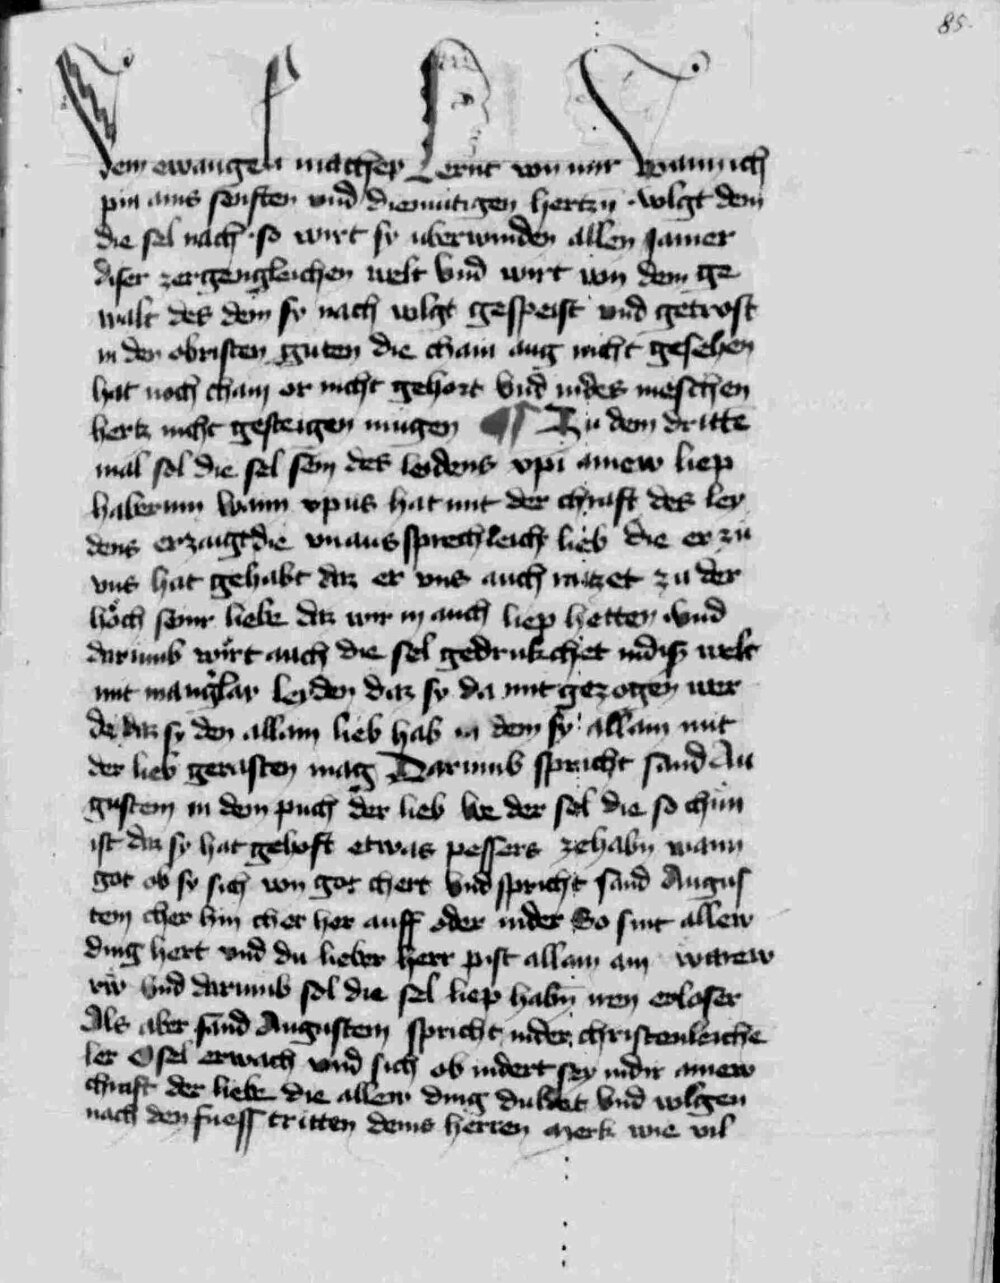 85
dem ewangeli mathey Lernt von mir wann ich
pin ains senften vnd diemutigen hertzn · volgt dem
die sel nach · so wirt sy vberwinden allen jamer
diser zergengleichen welt vnd wirt von dem ge
walt des dem sy nach volgt gespeist vnd getrost
in den obristen guten die chain aug nicht gesehen
hat noch chain or nicht gehort vnd in des meschen
hertz nicht gesteigen mugen ¶ Zu dem dritte
mal sol die sel sein des leidens xpi ainew liep
haberinn wann xpus hat mit der chraft des ley
dens erzaigt die vnaussprechleich lieb die er zu
vns hat gehabt daz er vns auch raitzet zu der
hoch seinr liebe daz wir in auch liep hetten vnd
darumb wirt auch die sel gedrukchet in diser welt
mit manigerlay leyden daz sy da mit gezogen wer
de daz sy den allain lieb hab in dem sy allain mit
der lieb gerasten mag Darumb spricht sand Au
gustein in dem puch der lieb We der sel die so chun
ist daz sy hat gehoft etwas pessers ze habn wann
got ob sy sich von got chert vnd spricht sand Augus
tein cher hin cher her auff oder nider So sint allew
ding hert vnd du lieber herr pist allain ain warew
rw vnd darumb sol die sel liep habn iren erloser
Als aber sand Augustein spricht in der christenleiche
ler O sel erwach vnd sich ob indert sey in dir ainew
chraft der liebe die allew ding duldet vnd volgen
nach den fuesstritten deins herren Merk wie vil